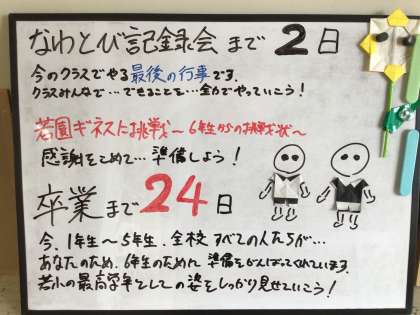 なわとび記録会まで2日
今のクラスでやる最後の行事です.
クラスみんなで…できることを…全力でやっていこう!
若園ギネスに挑戦〜6年生からの挑戦状〜
感謝をこめて…準備しよう!
卒業まで24日
今、1年生〜5年生、全校すべての人たちが…
あなたのため、6年生のために準備をがんばってくれています.
若小の最高学年としての姿をしっかり見せていこう!